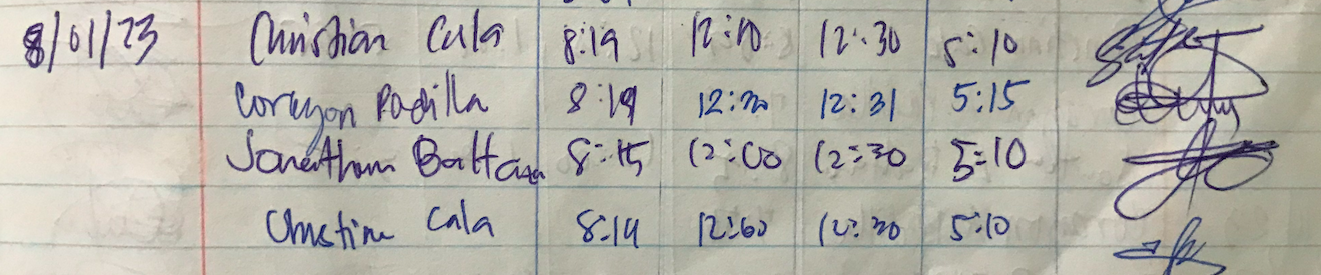 8/01/23 Christian Cala 8:19 12:10 12:30 5:10
Corazon Padilla 8:19 12:20 12:31 5:15
Jonathan 8:15 12:00 12:30 5:10
Christine Cala 8:19 12:00 12:30 5:10